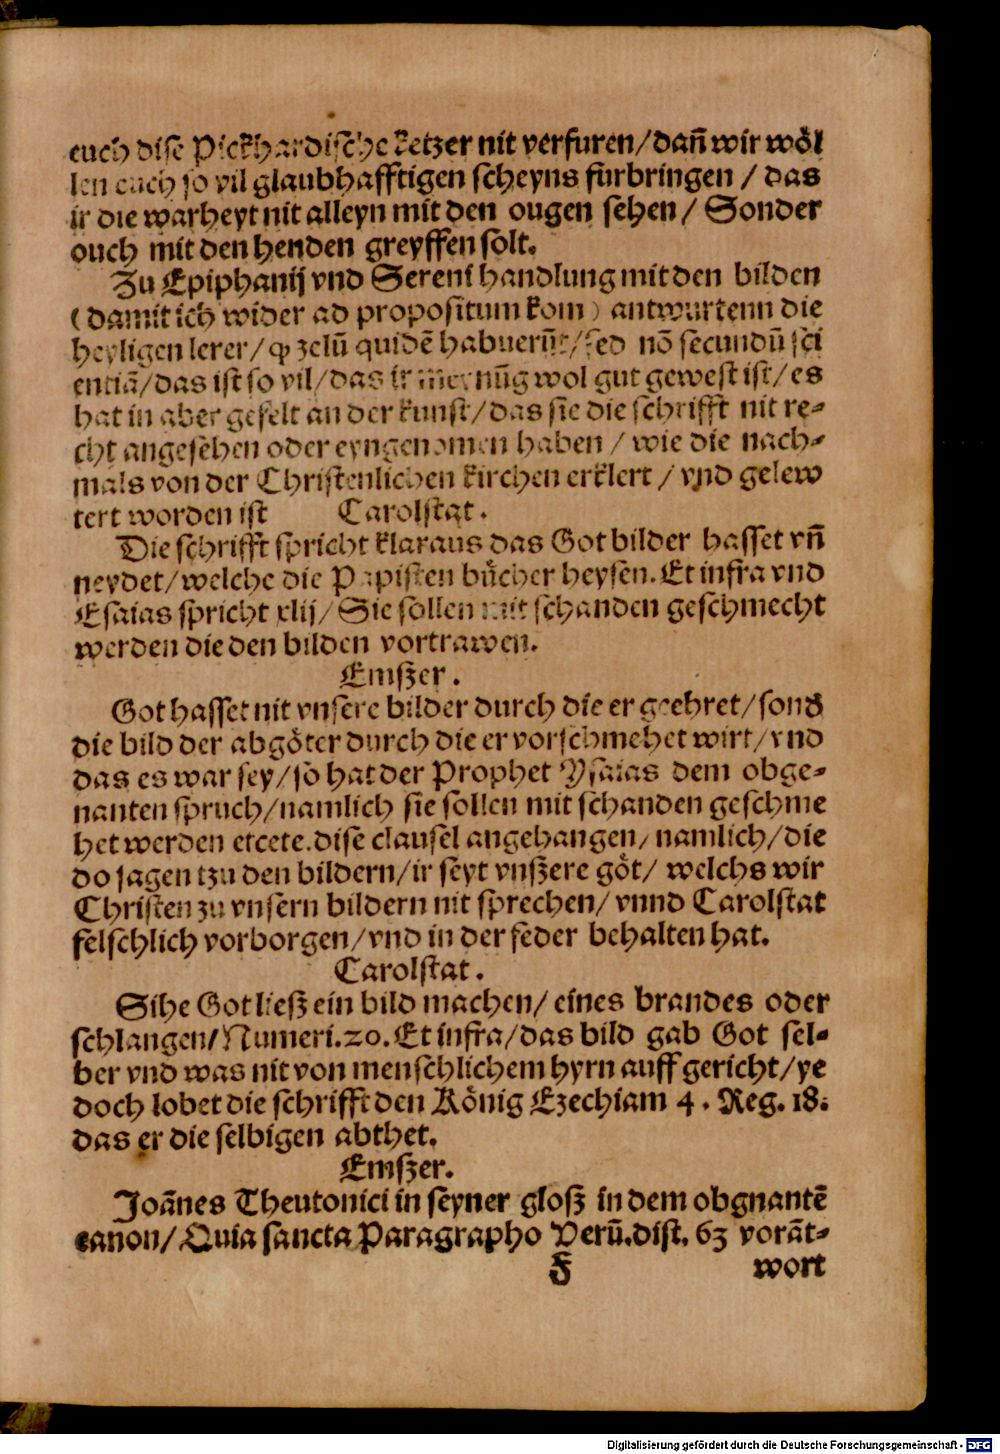 euch dise Pickhardische ketzer nit verfuren/dañ wir wöl
len euch so vil glaubhafftigen scheyns furbringen / das
ir die warheyt nit alleyn mit den ougen sehen/ Sonder
ouch mit den henden greyffen solt.
Zu Epiphanij vnd Sereni handlung mit den bilden
(damit ich wider ad propositum kom) antwurtenn die
heyligen lerer/ ꝙ zelū quidē habuerūt/sed nō secundū sci
entiā/das ist so vil/das ir meynūg wol gut gewest ist/es
hat in aber gefelt an der kunst/das sie die schrifft nit re-
cht angesehen oder eyngenomen haben / wie die nach-
mals von der Christenlichen kirchen erklert / vnd gelew
tert worden ist Carolstat.
Die schrifft spricht klaraus das Got bilder hasset vñ
neydet/welche die Papisten bücher heysen. Et infra vnd
Esaias spricht xlij/ Sie sollen mit schanden geschmecht
werden die den bilden vortrawen.
Emſzer.
Got hasset nit vnsere bilder durch die er geehret/sonð
die bild der abgöter durch die er vorschmehet wirt/vnd
das es war sey/so hat der Prophet Ysaias dem obge-
nanten spruch/namlich sie sollen mit schanden geschme
het werden etcete.dise clausel angehangen/namlich/die
do sagen tzu den bildern/ir seyt vnſzere göt/ welchs wir
Christen zu vnsern bildern nit sprechen/ vnnd Carolstat
felschlich vorborgen/vnd in der feder behalten hat.
Carolstat.
Sihe Got ließ ein bild machen/ eines brandes oder
schlangen/Numeri.20. Et infra/das bild gab Got sel-
ber vnd was nit von menschlichem hyrn auffgericht/ye
doch lobet die schrifft den König Ezechiam 4. Reg. 18.
das er die selbigen abthet.
Emſzer.
Joānes Theutonici in seyner gloß in dem obgnantē
canon/ Quia sancta Paragrapho Verū.dist. 63 vorāt-
F wort
Digitalisierung gefördert durch die Deutsche Forschungsgemeinschaft - DFG